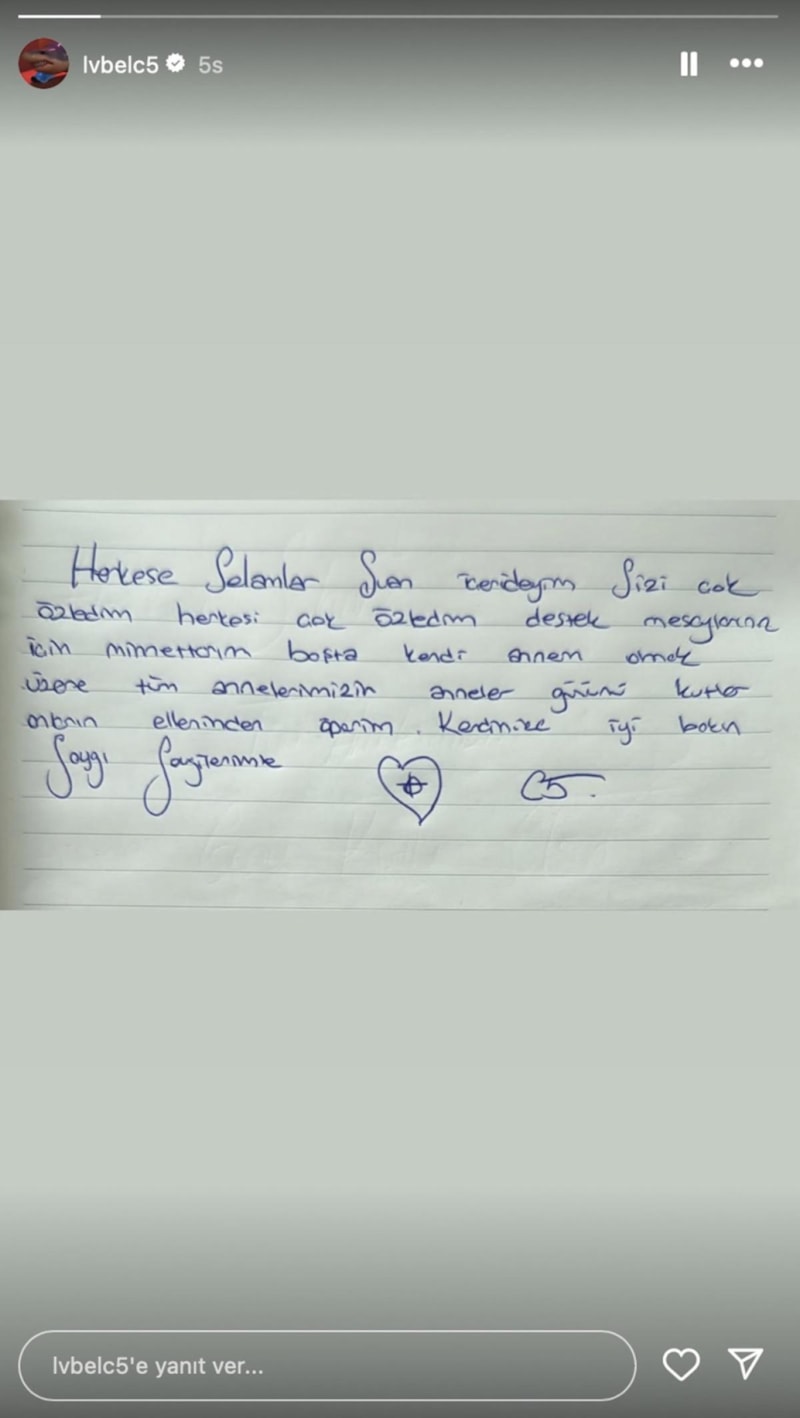 lvbelc5 5s
Herkese Selamlar Şuan içerideyim Sizi çok
özledim herkesi çok özledim destek mesajlarınız
için minnettarım başta kendi annem olmak
üzere tüm annelerimizin anneler gününü kutlar
onların ellerinden öperim. Kendinize iyi bakın
Saygı Sevgilerimle C5.
lvbelc5'e yanıt ver...